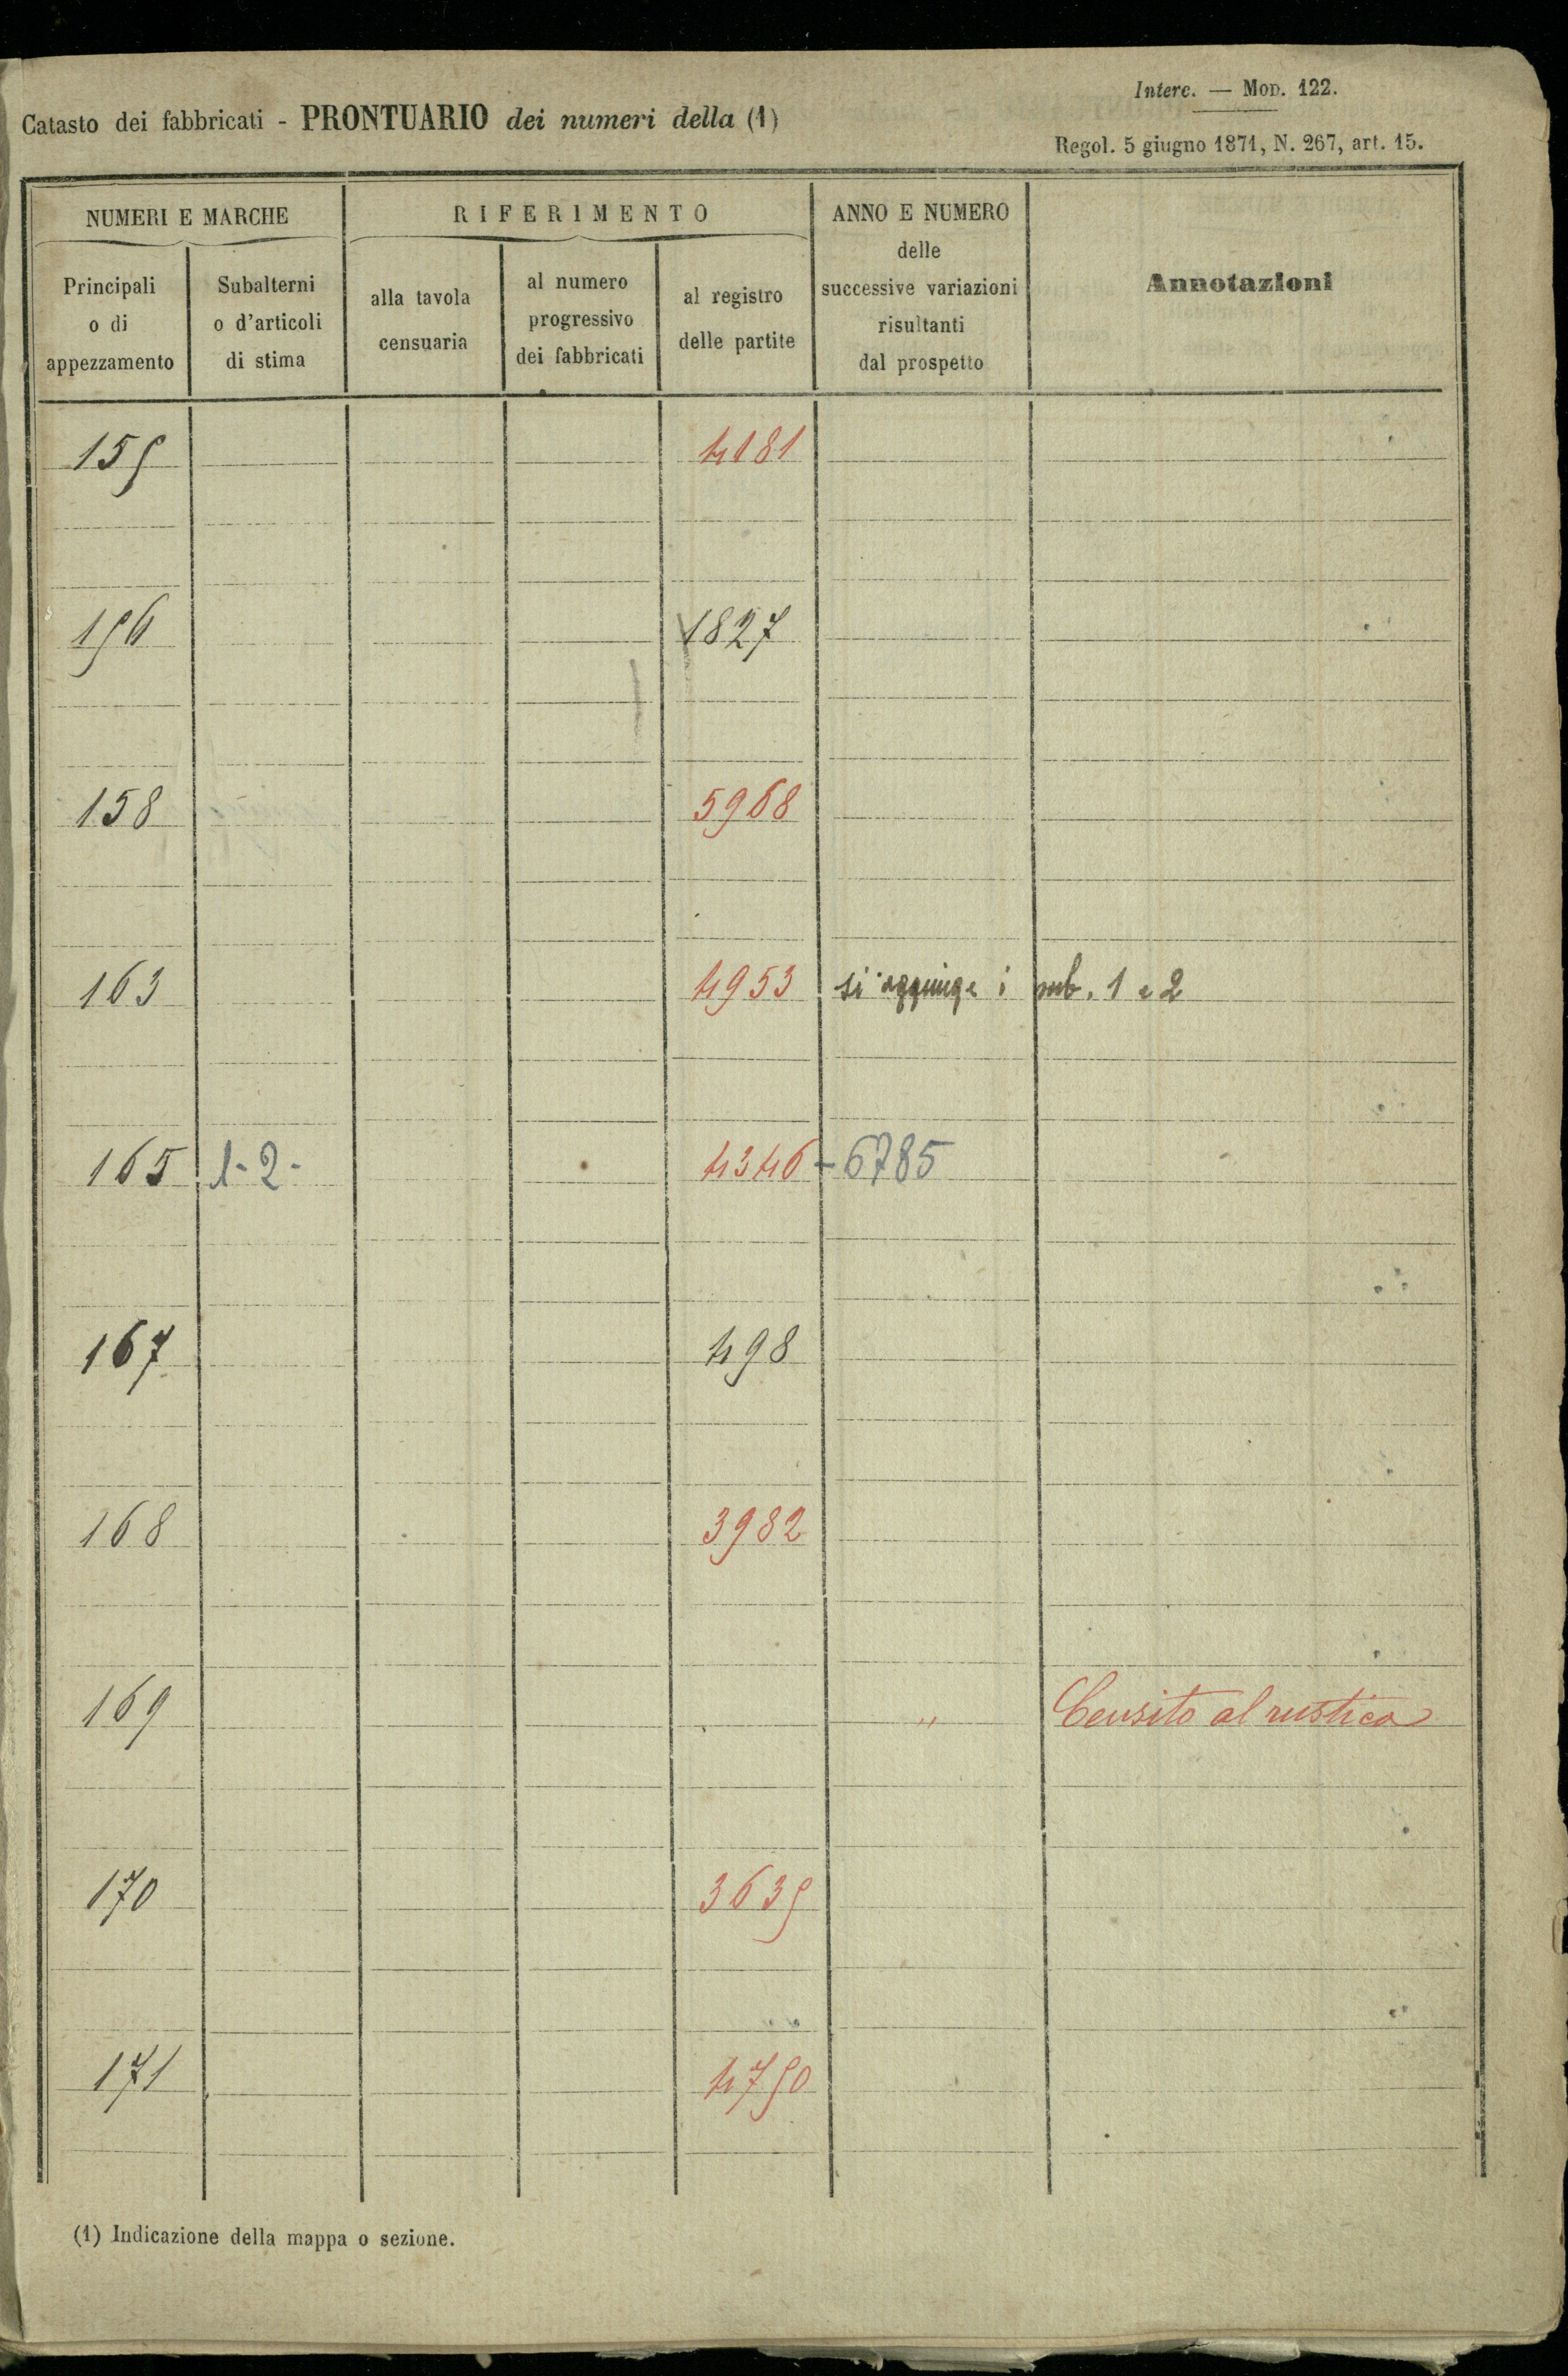 Interc. — Mod. 122.
Catasto dei fabbricati - PRONTUARIO dei numeri della (1)
Regol. 5 giugno 1871, N. 267, art. 15.
NUMERI E MARCHE
RIFERIMENTO
ANNO E NUMERO
delle
successive variazioni
risultanti
dal prospetto
Annotazioni
Principali
o di
appezzamento
Subalterni
o d'articoli
di stima
alla tavola
censuaria
al numero
progressivo
dei fabbricati
al registro
delle partite
155 4181
156 1827
158 5968
163 4953 si aggiunge i sub. 1 e 2
165 1-2- 4346-6785
167 498
168 3982
169 " Censito al rustico
170 3635
171 4750
(1) Indicazione della mappa o sezione.